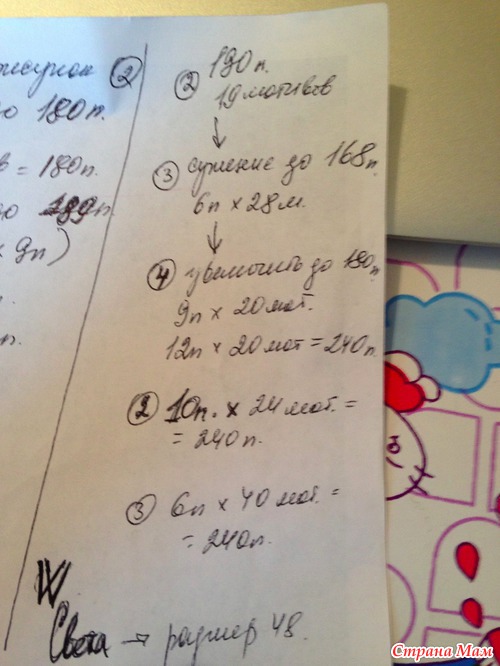 рисунок ②
до 180п.
= 180п.
9п)
п.
② 190п.
19 мотивов
↓
③ сужение до 168п.
6п × 28м.
↓
④ увеличить до 180п
9п × 20мот.
12п × 20мот = 240п.
② 10п. × 24мот. =
= 240п.
③ 6п × 40мот. =
= 240п.
W
Света → размер 48.
Страна Мам